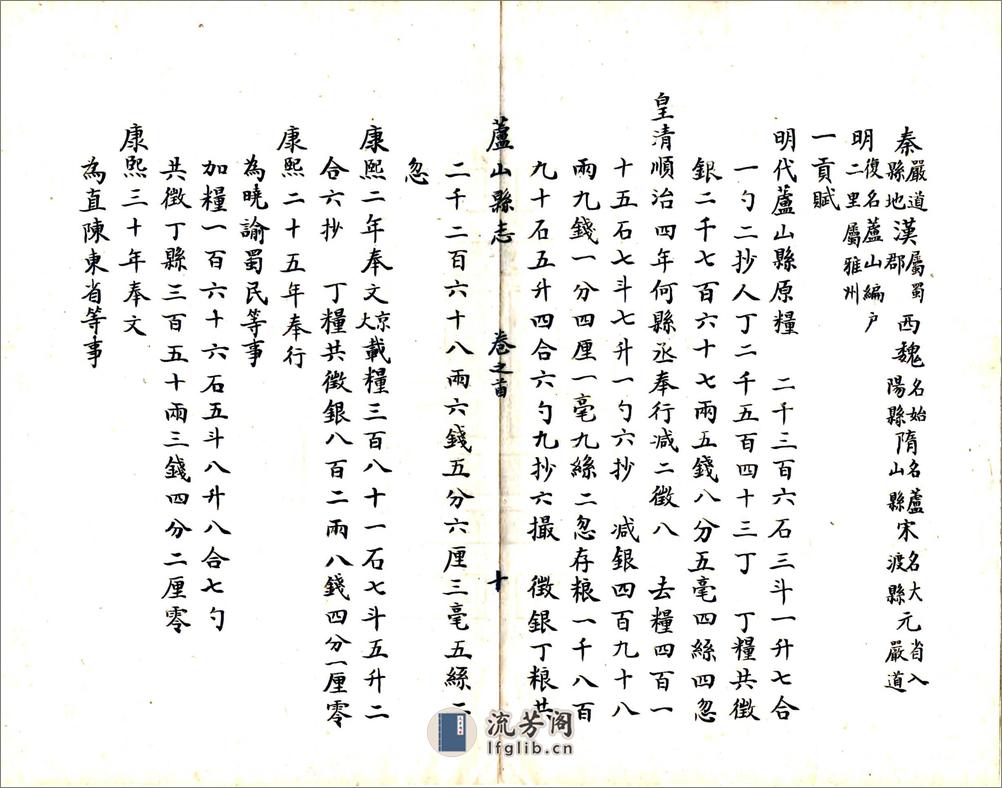 秦嚴道縣地漢屬蜀郡西魏名始陽縣隋名蘆山縣宋名大渡縣元省入嚴道
明復名蘆山編戶二里屬雅州
一貢賦
明代蘆山縣原糧 二千三百六石三斗一升七合
一勺二抄人丁二千五百四十三丁 丁糧共徵
銀二千七百六十七兩五錢八分五毫四絲四忽
皇清順治四年何縣丞奉行減二徵八 去糧四百一
十五石七斗七升一勺六抄 減銀四百九十八
兩九錢一分四厘一毫九絲二忽存粮一千八百
九十石五升四合六勺九抄六撮 徵銀丁粮共
蘆山縣志 卷之首 十
二千二百六十八兩六錢五分六厘三毫五絲二
忽
康熙二年奉文大京載糧三百八十一石七斗五升二
合六抄 丁糧共徵銀八百二兩八錢四分一厘零
康熙二十五年奉行
為曉諭蜀民等事
加糧一百六十六石五斗八升八合七勺
共徵丁縣三百五十兩三錢四分二厘零
康熙三十年奉文
為直陳東省等事
流芳阁
lfglib.cn